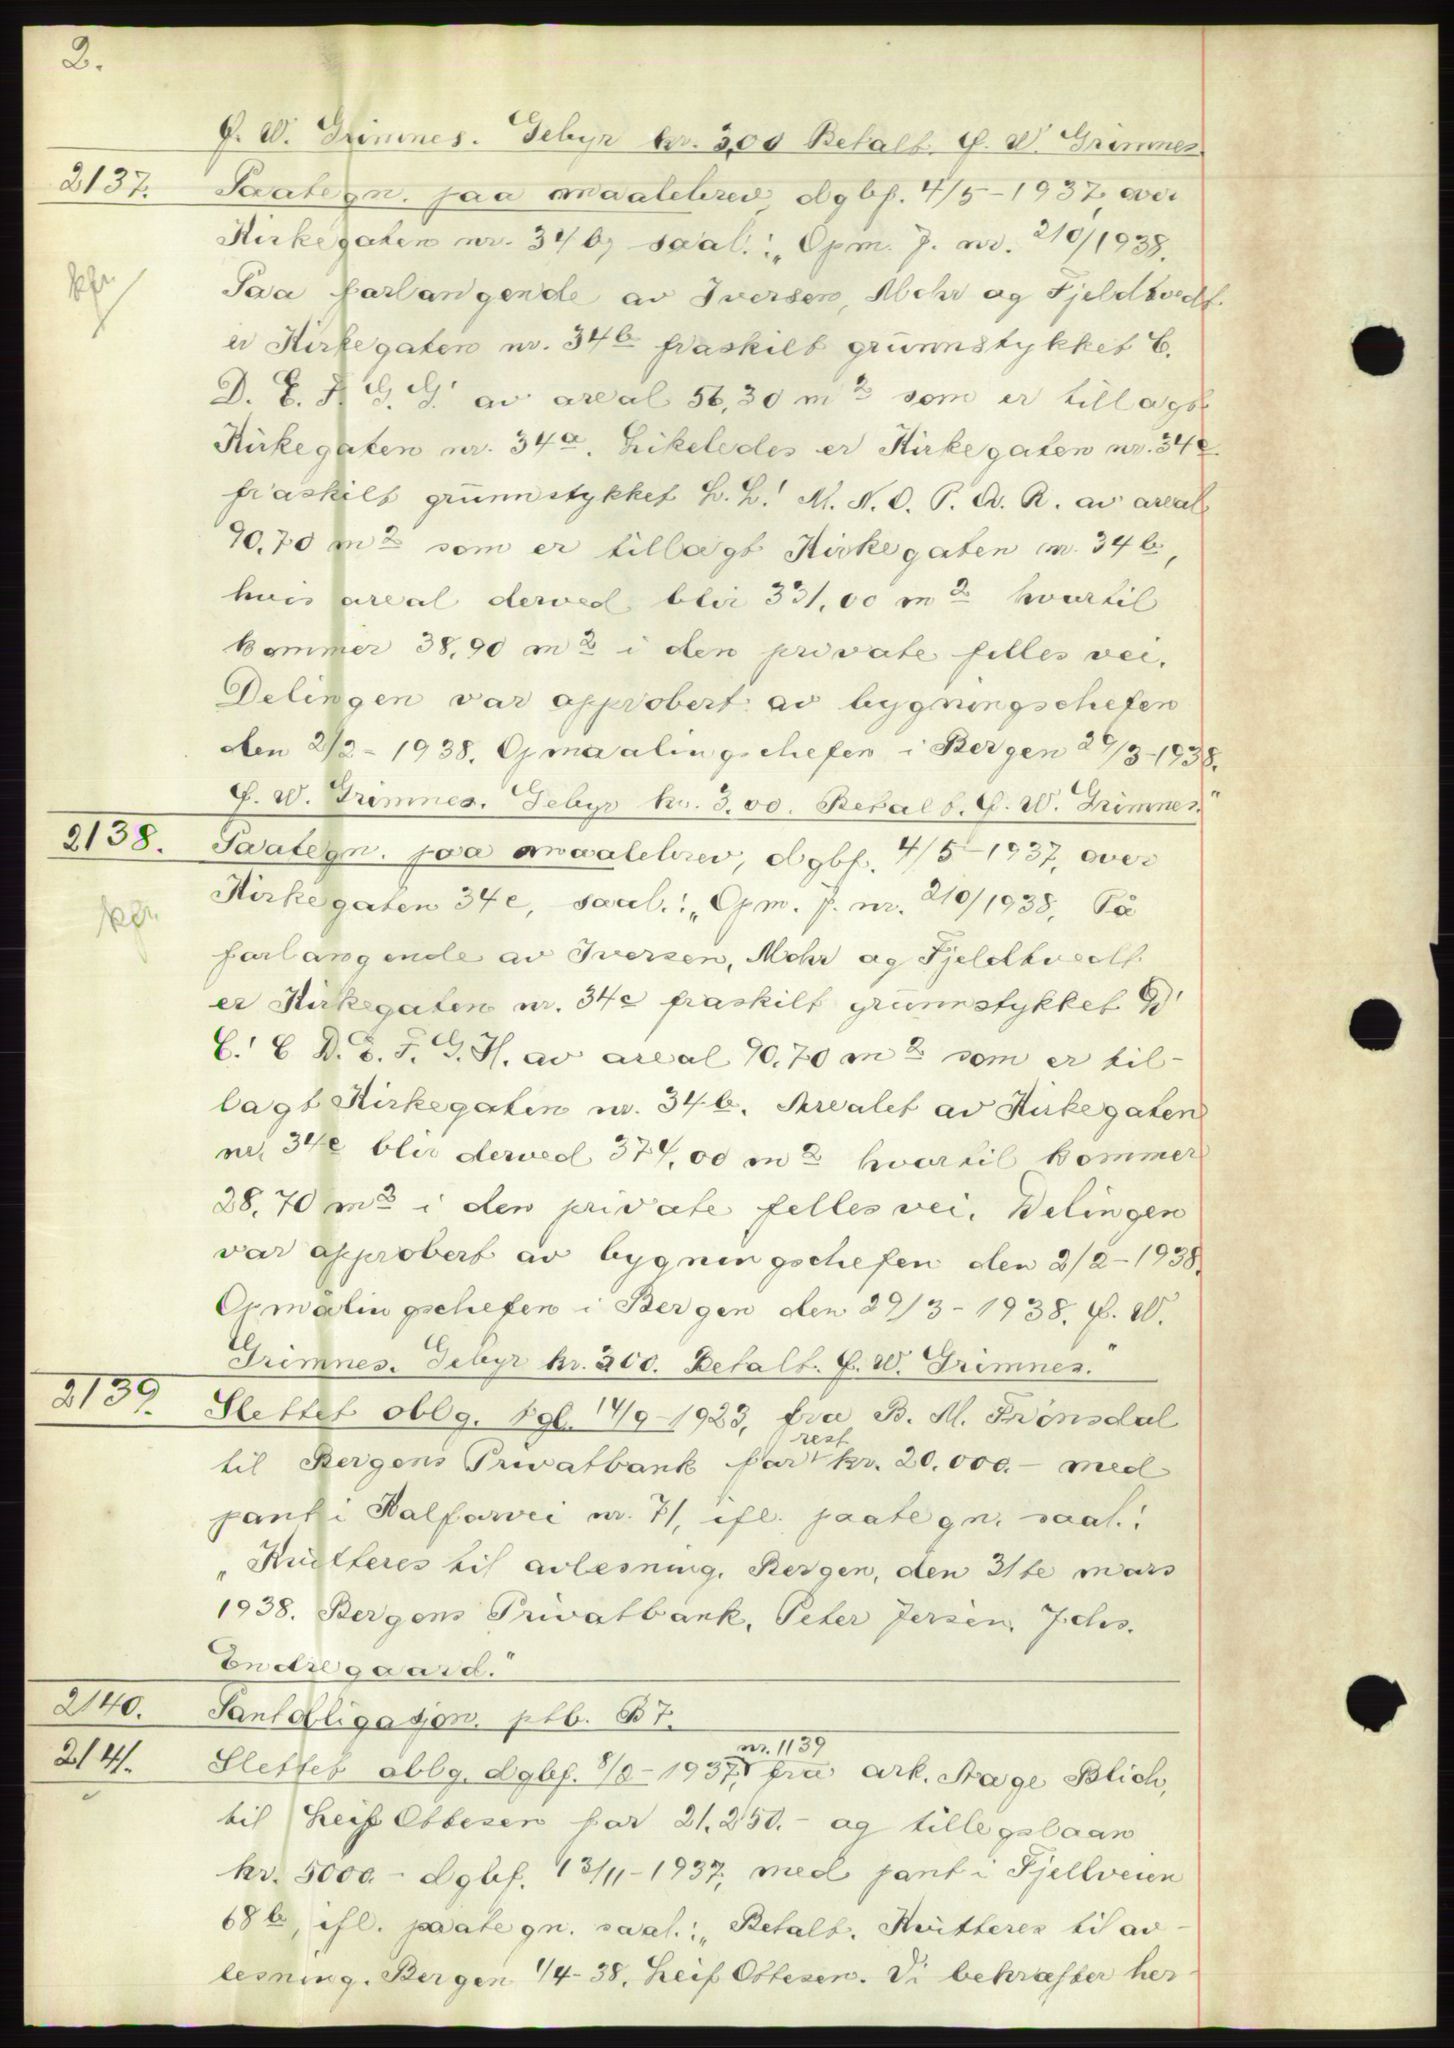 2.
G. W. Grimnes. Gebyr kr. 3,00 Betalt. G. W. Grimnes
2137. Paategn. paa maalebrev, dgbf. 4/5-1937, over
Kirkegaten nr. 34 b, saal.: „Opm. J. nr. 210/1938.
kfr.
Paa forlangende av Iversen, Mohr og Fjeldtvedt.
er Kirkegaten nr. 34b fraskilt grunnstykket C.
D. E. F. G. G.' av areal 56,30 m2 som er tillagt
Kirkegaten nr. 34a. Likeledes er Kirkegaten nr. 34c.
fraskilt grunnstykket L. L.' M. N. O. P. Q. R. av areal
90,70 m2 som er tillagt Kirkegaten nr. 34 b,
hvis areal derved blir 331,00 m2 hvortil
kommer 38,90 m2 i den private felles vei.
Delingen var approbert av bygningschefen
den 2/2-1938. Opmaalingschefen i Bergen 29/3-1938.
G. W. Grimnes. Gebyr kr. 3.00. Betalt. G. W. Grimnes."
2138. Paategn. paa maalebrev, dgbf. 4/5-1937, over
Kirkegaten 34c, saal.: „Opm. J. nr. 210/1938. På
kfr.
forlangende av Iversen, Mohr og Fjeldtvedt.
er Kirkegaten nr. 34c fraskilt grunnstykket B'
C.' C D. E. F. G. H. av areal 90,70 m2 som er til-
lagt Kirkegaten nr. 34 b. Arealet av Kirkegaten
nr. 34c blir derved 374,00 m2 hvortil kommer
28,70 m2 i den private felles vei. Delingen
var approbert av bygningschefen den 2/2-1938.
Opmålingschefen i Bergen den 29/3-1938. G. W.
Grimnes. Gebyr kr. 300. Betalt. G. W. Grimnes."
2139. Slettet oblg. tgl. 14/9-1923, fra B. M. Frønsdal
rest
til Bergens Privatbank for kr. 20.000.- med
pant i Kalfarvei nr. 71, ifl. paategn. saal.:
„Kvitteres til avlesning. Bergen, den 31te mars
1938. Bergens Privatbank. Peter Jersin. Johs.
Endregaard."
2140. Pantobligasjon. ptb. B7.
nr. 1139
2141. Slettet oblg. dgbf. 8/2-1937, fra ark. Aage Blich,
til Leif Ottesen for 21.250.- og tillegslaan
kr. 5000.- dgbf. 13/11-1937, med pant i Fjellveien
68 b, ifl. paategn. saal.: „Betalt. Kvitteres til av-
lesning. Bergen 1/4-38. Leif Ottesen. Vi bekræfter her-